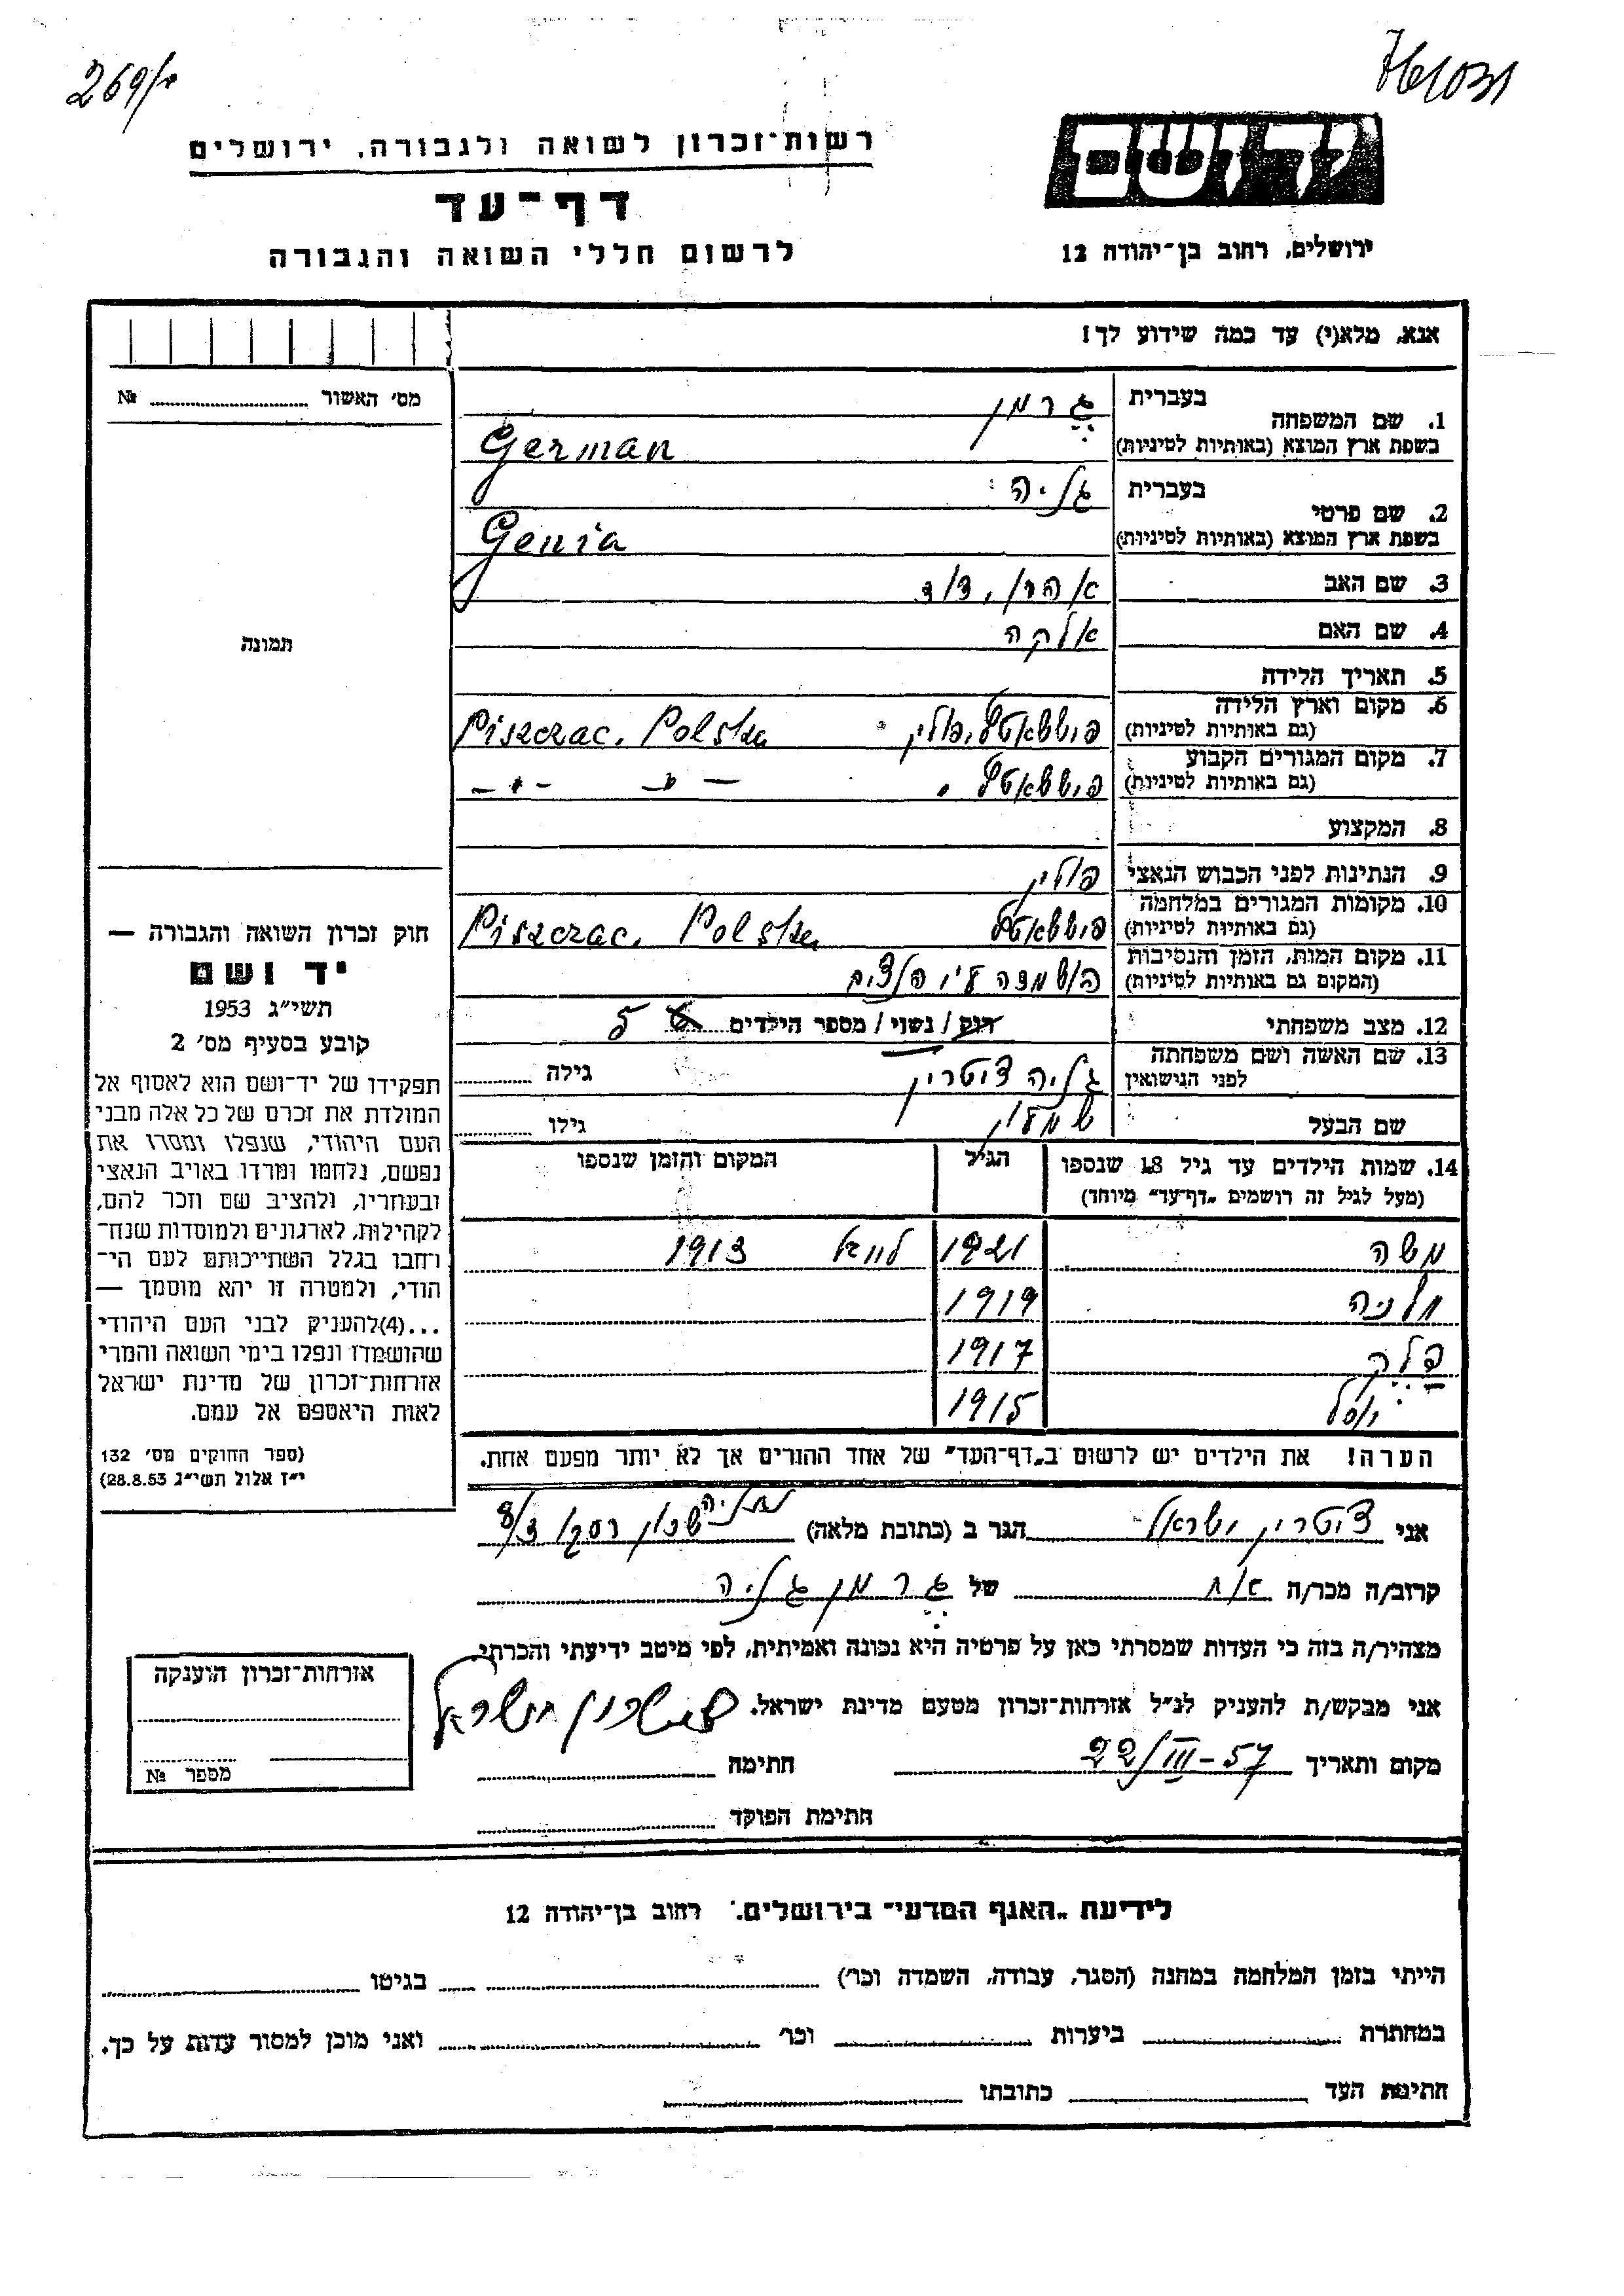 269/
רשות־זכרון לשואה ולגבורה, ירושלים
דף־עד
לרשום חללי השואה והגבורה
ידושם
ירושלים, רחוב בן־יהודה 12
אנא, מלא(י) עד כמה שידוע לך!
מס׳ האשור № 
1. שם המשפחה
בעברית גרמן
בשפת ארץ המוצא (באותיות לטיניות) German
2. שם פרטי
בעברית גניה
בשפת ארץ המוצא (באותיות לטיניות) Genia
3. שם האב אהרן, דוד
4. שם האם אלקה
5. תאריך הלידה
6. מקום וארץ הלידה
(גם באותיות לטיניות) פולין Piszczac, Polska
7. מקום המגורים הקבוע
(גם באותיות לטיניות) — " — - " -
8. המקצוע
9. הנתינות לפני הכבוש הנאצי פולין
10. מקומות המגורים במלחמה
(גם באותיות לטיניות) Piszczac, Polska
11. מקום המות, הזמן והנסיבות
(המקום גם באותיות לטיניות) הושמדה ע״י
12. מצב משפחתי רוק / נשוי / מספר הילדים 5
13. שם האשה ושם משפחתה
לפני הנישואין גניה ציטרין גילה
שם הבעל שמעון גילו
14. שמות הילדים עד גיל 18 שנספו
(מעל לגיל זה רושמים „דף־עד" מיוחד)
הגיל
המקום והזמן שנספו
משה 1921 1913
1919
1917
1915
הערה! את הילדים יש לרשום ב„דף־העד" של אחד ההורים אך לא יותר מפעם אחת.
תמונה
חוק זכרון השואה והגבורה —
יד ושם
תשי״ג 1953
קובע בסעיף מס׳ 2
תפקידו של יד־ושם הוא לאסוף אל
המולדת את זכרם של כל אלה מבני
העם היהודי, שנפלו ומסרו את
נפשם, נלחמו ומרדו באויב הנאצי
ובעוזריו, ולהציב שם וזכר להם,
לקהילות, לארגונים ולמוסדות שנח־
רחבו בגלל השתייכותם לעם הי־
הודי, ולמטרה זו יהא מוסמך —
...(4)להעניק לבני העם היהודי
שהושמדו ונפלו בימי השואה והמרי
אזרחות־זכרון של מדינת ישראל
לאות היאספם אל עמם.
(ספר החוקים מס׳ 132
י״ז אלול תשי״ג 28.8.53)
אני ציטרין ישראל הגר ב (כתובת מלאה) נתניה שכון
קרוב/ה מכר/ה אח של גרמן גניה
מצהיר/ה בזה כי העדות שמסרתי כאן על פרטיה היא נכונה ואמיתית, לפי מיטב ידיעתי והכרתי.
אני מבקש/ת להעניק לנ״ל אזרחות־זכרון מטעם מדינת ישראל. ציטרין ישראל
מקום ותאריך 22/III-57 חתימה
חתימת הפוקד
אזרחות־זכרון הוענקה
מספר №
לידיעת „האגף המדעי" בירושלים. רחוב בן־יהודה 12
הייתי בזמן המלחמה במחנה (הסגר, עבודה, השמדה וכו׳) בגיטו
במחתרת ביערות וכו׳ ואני מוכן למסור עדות על כך.
חתימת העד כתובתו